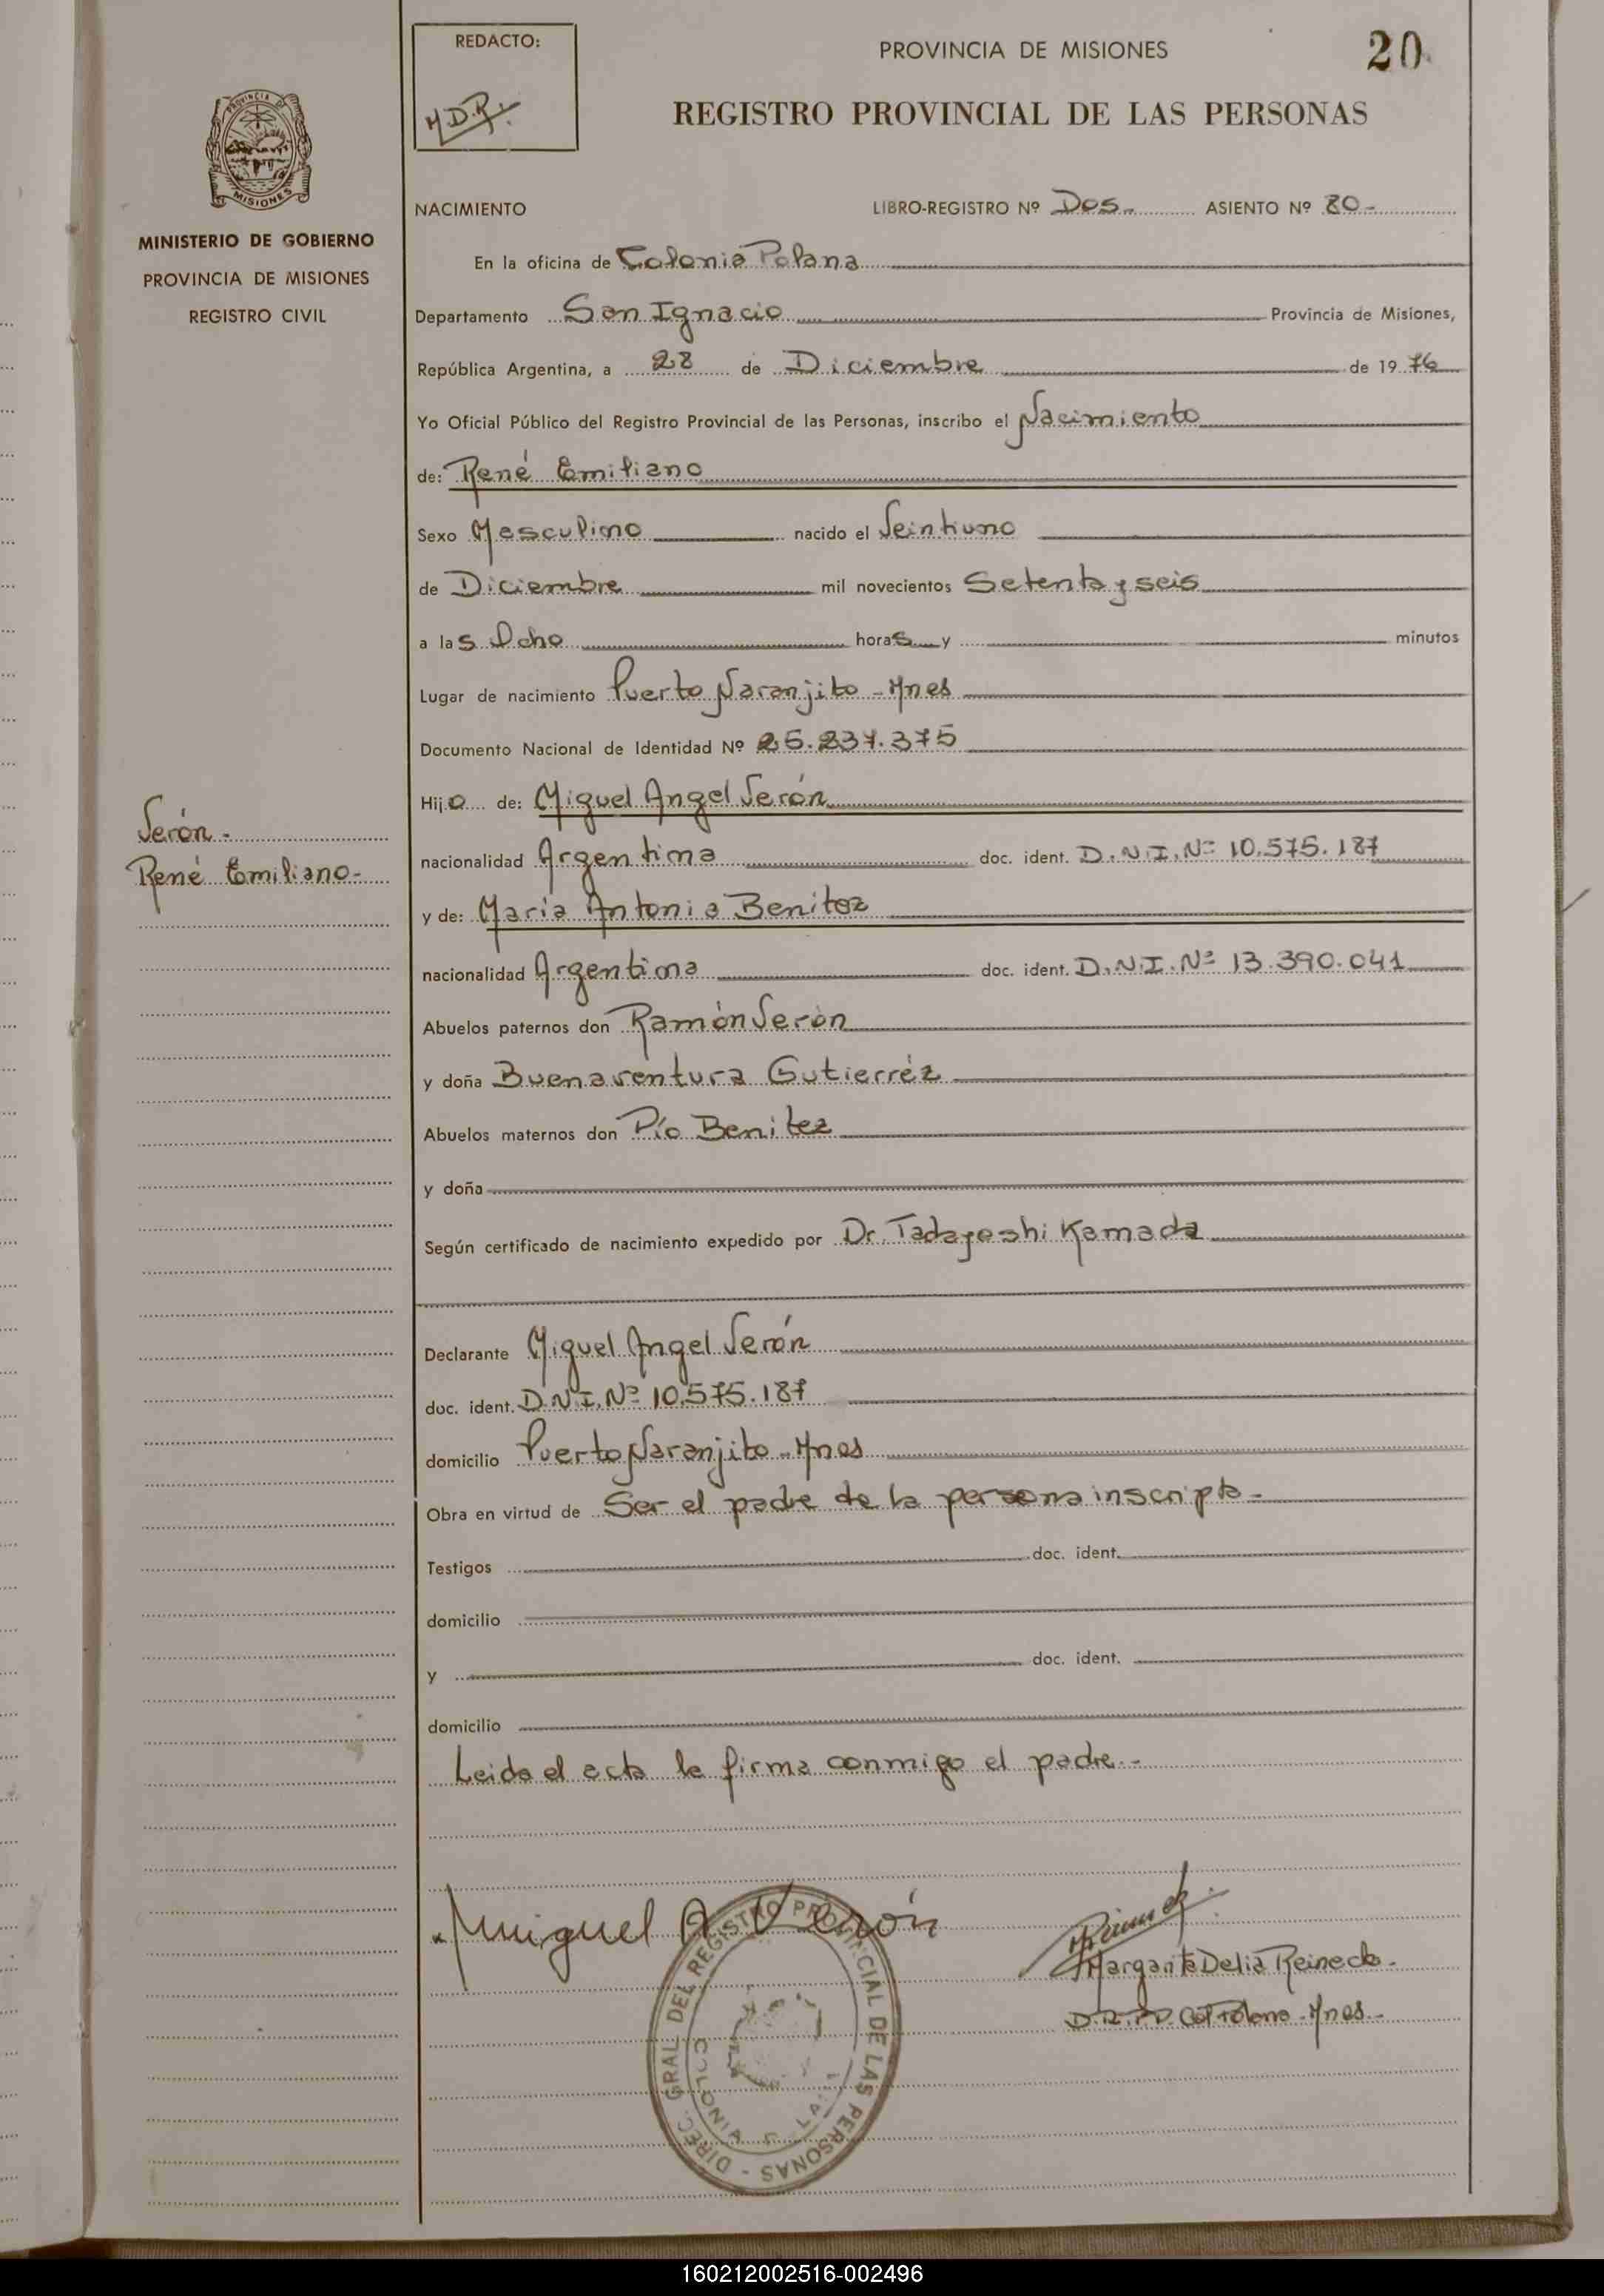 REDACTO:
M.D.R.
PROVINCIA DE MISIONES
20
REGISTRO PROVINCIAL DE LAS PERSONAS
PROVINCIA DE
MISIONES
MINISTERIO DE GOBIERNO
PROVINCIA DE MISIONES
REGISTRO CIVIL
NACIMIENTO LIBRO-REGISTRO Nº Dos.- ASIENTO Nº 80-
En la oficina de Colonia Polana
Departamento San Ignacio Provincia de Misiones,
República Argentina, a 28 de Diciembre de 1976
Yo Oficial Público del Registro Provincial de las Personas, inscribo el Nacimiento
de: René Emiliano
Sexo Masculino nacido el Veintiuno
de Diciembre mil novecientos Setenta y seis
a las Ocho horas y minutos
Lugar de nacimiento Puerto Naranjito - Mnes
Documento Nacional de Identidad Nº 25.237.375
Hijo de: Miguel Angel Verón
Verón.-
René Emiliano-
nacionalidad Argentina doc. ident. D.N.I. Nº 10.575.187
y de: María Antonia Benitez
nacionalidad Argentina doc. ident. D.N.I. Nº 13.390.041
Abuelos paternos don Ramón Verón
y doña Buenaventura Gutierréz
Abuelos maternos don Pío Benitez
y doña
Según certificado de nacimiento expedido por Dr. Tadayoshi Kamada
Declarante Miguel Angel Verón
doc. ident. D.N.I. Nº 10.575.187
domicilio Puerto Naranjito - Mnes
Obra en virtud de Ser el padre de la persona inscripta-
Testigos doc. ident.
domicilio
y doc. ident.
domicilio
Leida el acta la firma conmigo el padre.-
Miguel A Verón
Margarita Delia Reineck.
D.R.P.P. Col Polana - Mnes.-
DIREC. GRAL. DEL REGISTRO PROVINCIAL DE LAS PERSONAS -
COLONIA
160212002516-002496